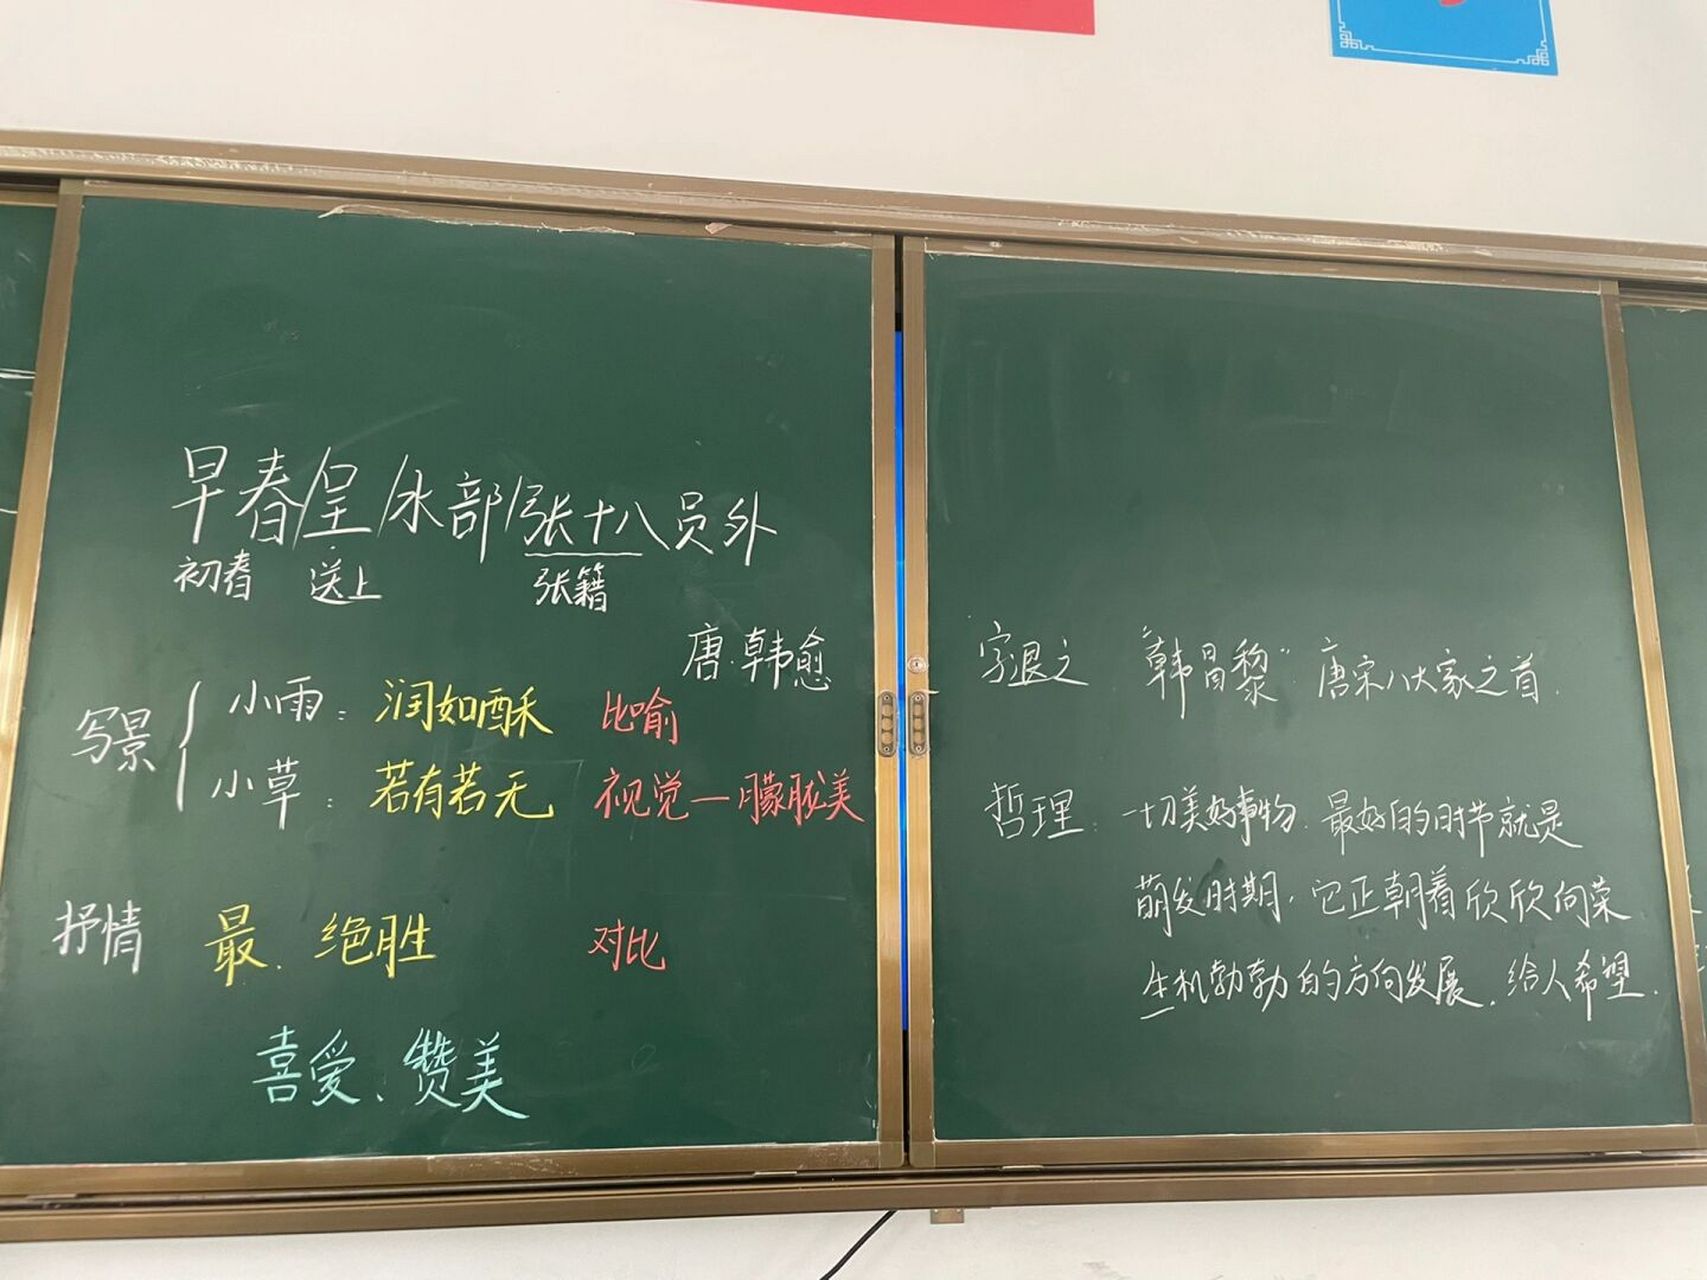 早春/呈/水部/张十八员外
初春 送上 张籍
唐·韩愈
写景
小雨：润如酥 比喻
小草：若有若无 视觉—朦胧美
抒情 最、绝胜 对比
喜爱、赞美
字退之 "韩昌黎" 唐宋八大家之首.
哲理：一切美好事物.最好的时节就是
萌发时期，它正朝着欣欣向荣
生机勃勃的方向发展，给人希望.